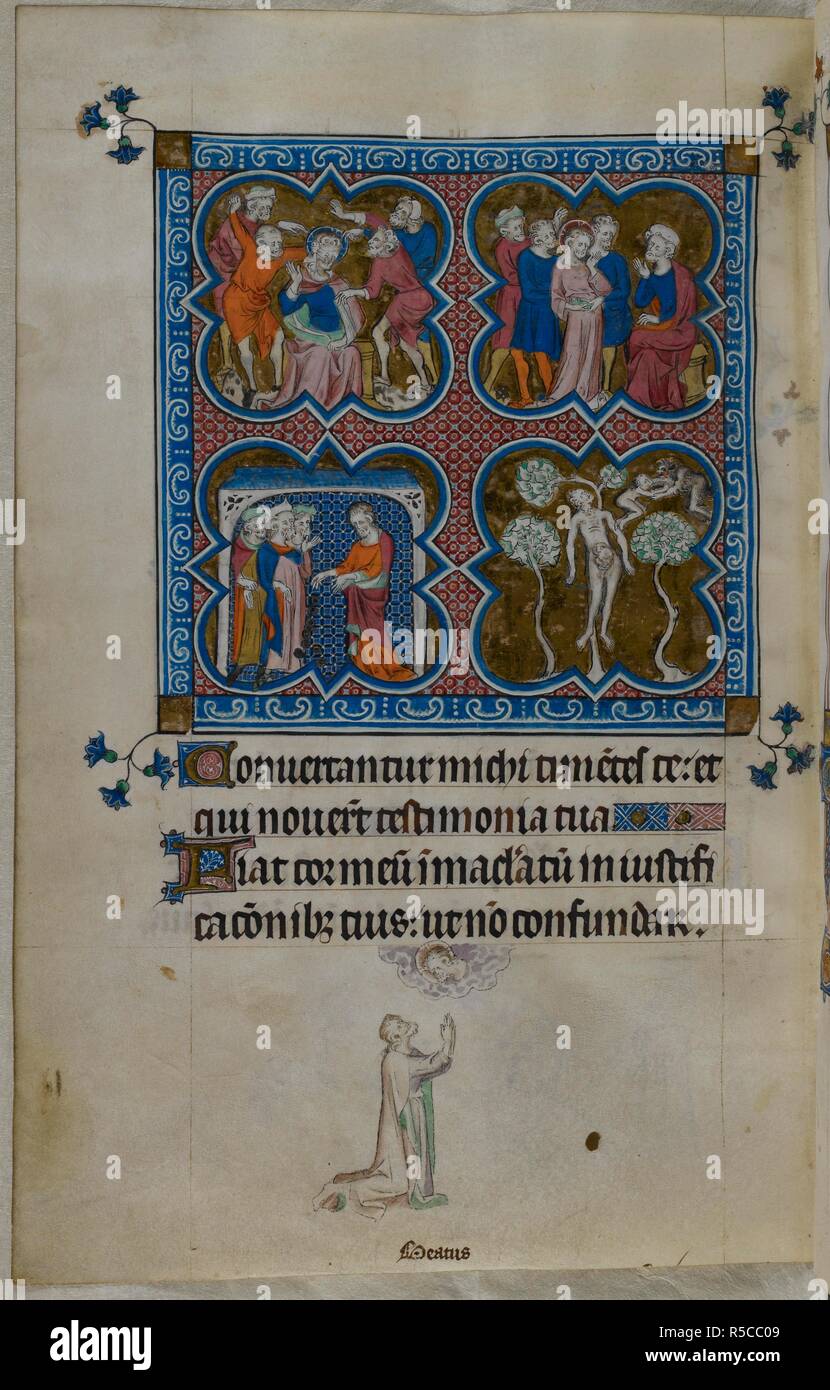 Conuertantur michi timẽtes te: et
qui nouer̃t testimonia tua
Fiat cor meũ ĩmacl'atũ in iustifi
catõnibꝫ tuis: ut nõ confundar.
Beatus
alamy
Image ID: R5CC09
www.alamy.com